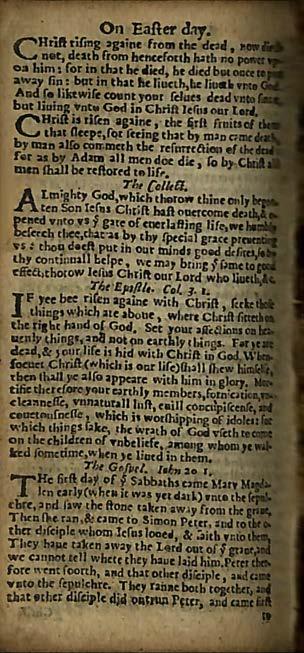 On Easter day.
CHrist rising againe from the dead, now dieth
not, death from henceforth hath no power vp-
on him: for in that he died, he died but once to put
away sin: but in that he liueth, he liueth vnto God.
And so likewise count your selues dead vnto sinne,
but liuing vnto God in Christ Iesus our Lord.
CHrist is risen againe, the first fruits of them
that sleepe, for seeing that by man came death,
by man also commeth the resurrection of the dead
for as by Adam all men doe die, so by Christ all
men shall be restored to life.
The Collect.
ALmighty God, which thorow thine only begot-
ten Son Iesus Christ hast ouercome death, & o-
pened vnto vs ye gate of euerlasting life, we humbly
beseech thee, that as by thy special grace preuenting
vs: thou doest put in our minds good desires, so by
thy continuall helpe, we may bring ye same to good
effect, thorow Iesus Christ our Lord who liueth, &c.
The Epistle. Col. 3. 1.
IF yee bee risen againe with Christ, seeke those
things which are aboue, where Christ sitteth on
the right hand of God. Set your affections on hea-
uenly things, and not on earthly things. For ye are
dead, & your life is hid with Christ in God. When-
soeuer Christ (which is our life) shall shew himselfe,
then shall ye also appeare with him in glory. Mor-
tifie therefore your earthly members, fornication, vn-
cleannesse, vnnaturall lust, euill concupiscense, and
couetousnesse, which is worshipping of idoles: for
which things sake, the wrath of God vseth to come
on the children of vnbeliefe, among whom ye wal-
ked sometime, when ye liued in them.
The Gospel. Iohn 20 1.
THe first day of ye Sabbaths came Mary Magda-
len early (when it was yet dark) vnto the sepul-
chre, and saw the stone taken away from the graue,
Then she ran, & came to Simon Peter, and to the o-
ther disciple whom Iesus loued, & saith vnto them,
They haue taken away the Lord out of ye graue, and
we cannot tell where they haue laid him. Peter ther-
fore went foorth, and that other disciple, and came
vnto the sepulchre. They ranne both together, and
that other disciple did outrun Peter, and came first
to